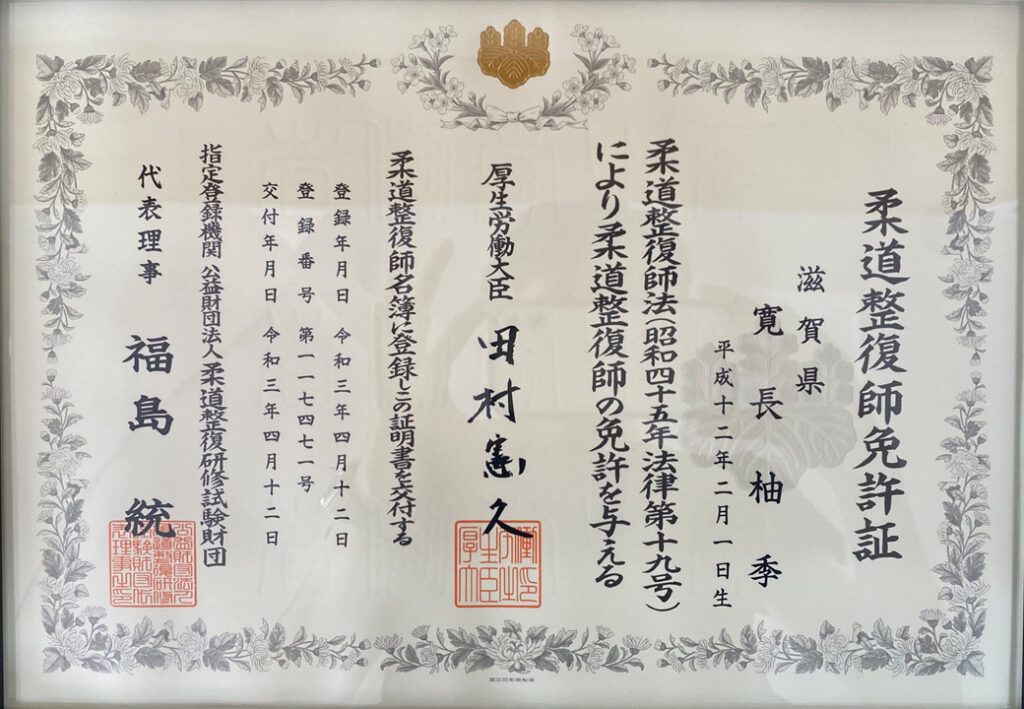 柔道整復師免許証
滋賀県
寛長柚季
平成十二年二月一日生
柔道整復師法(昭和四十五年法律第十九号)
により柔道整復師の免許を与える
厚生労働大臣 田村憲久
柔道整復師名簿に登録しこの証明書を交付する
登録年月日 令和三年四月十二日
登録番号 第一一七四七一号
交付年月日 令和三年四月十二日
指定登録機関 公益財団法人 柔道整復研修試験財団
代表理事 福島統